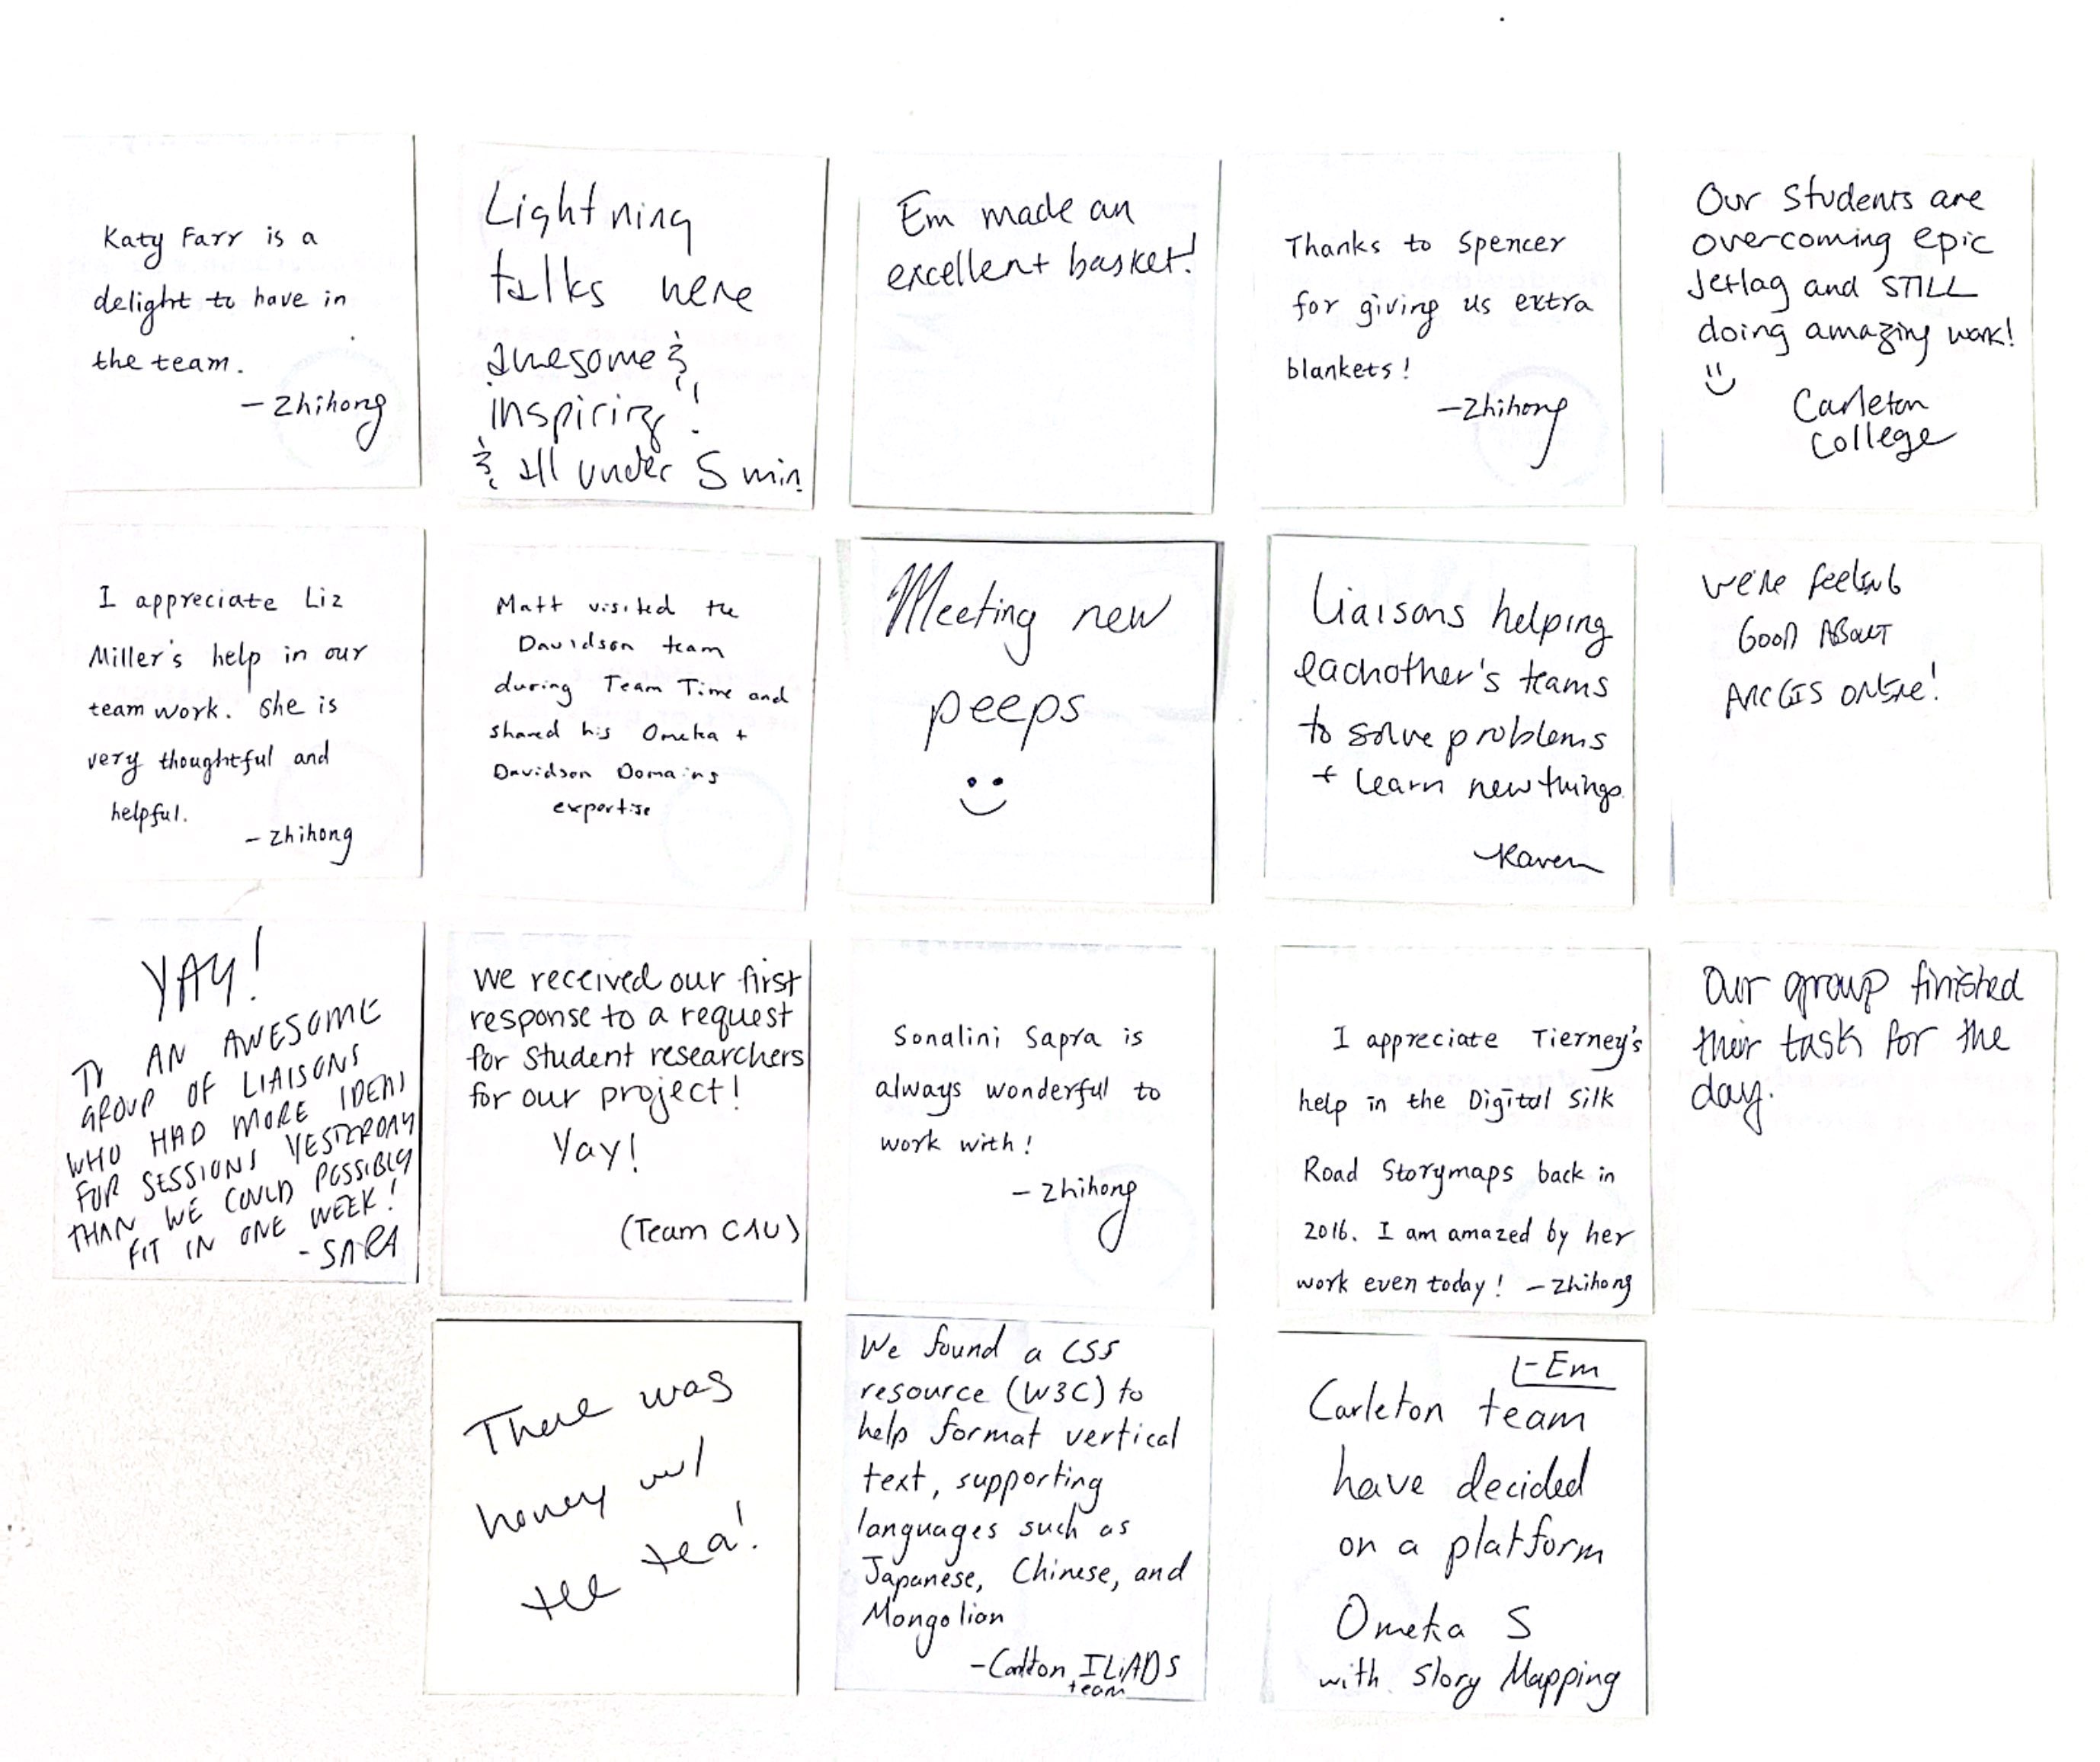 Katy Farr is a
delight to have in
the team.
- Zhihong
Lightning
talks were
awesome &
inspiring!
& all under 5 min
Em made an
excellent basket!
Thanks to Spencer
for giving us extra
blankets!
- Zhihong
Our students are
overcoming epic
Jetlag and STILL
doing amazing work!
Carleton
College
I appreciate Liz
Miller's help in our
team work. She is
very thoughtful and
helpful.
- Zhihong
Matt visited the
Davidson team
during Team Time and
shared his Omeka +
Davidson Domains
expertise
Meeting new
peeps
Liaisons helping
eachother's teams
to solve problems
+ learn new things
-Karen
We're feeling
Good About
ArcGIS online!
YAY!
To AN AWESOME
GROUP OF LIAISONS
WHO HAD MORE IDEAS
FOR SESSIONS YESTERDAY
THAN WE COULD POSSIBLY
FIT IN ONE WEEK!
- SARA
We received our first
response to a request
for student researchers
for our project!
Yay!
(Team CAU)
Sonalini Sapra is
always wonderful to
work with!
- Zhihong
I appreciate Tierney's
help in the Digital Silk
Road Storymaps back in
2016. I am amazed by her
work even today! - Zhihong
Our group finished
their task for the
day.
There was
honey w/
tee tea!
We found a CSS
resource (W3C) to
help format vertical
text, supporting
languages such as
Japanese, Chinese, and
Mongolian
- Carlton ILiADS
team
- Em
Carleton team
have decided
on a platform
Omeka S
with Story Mapping